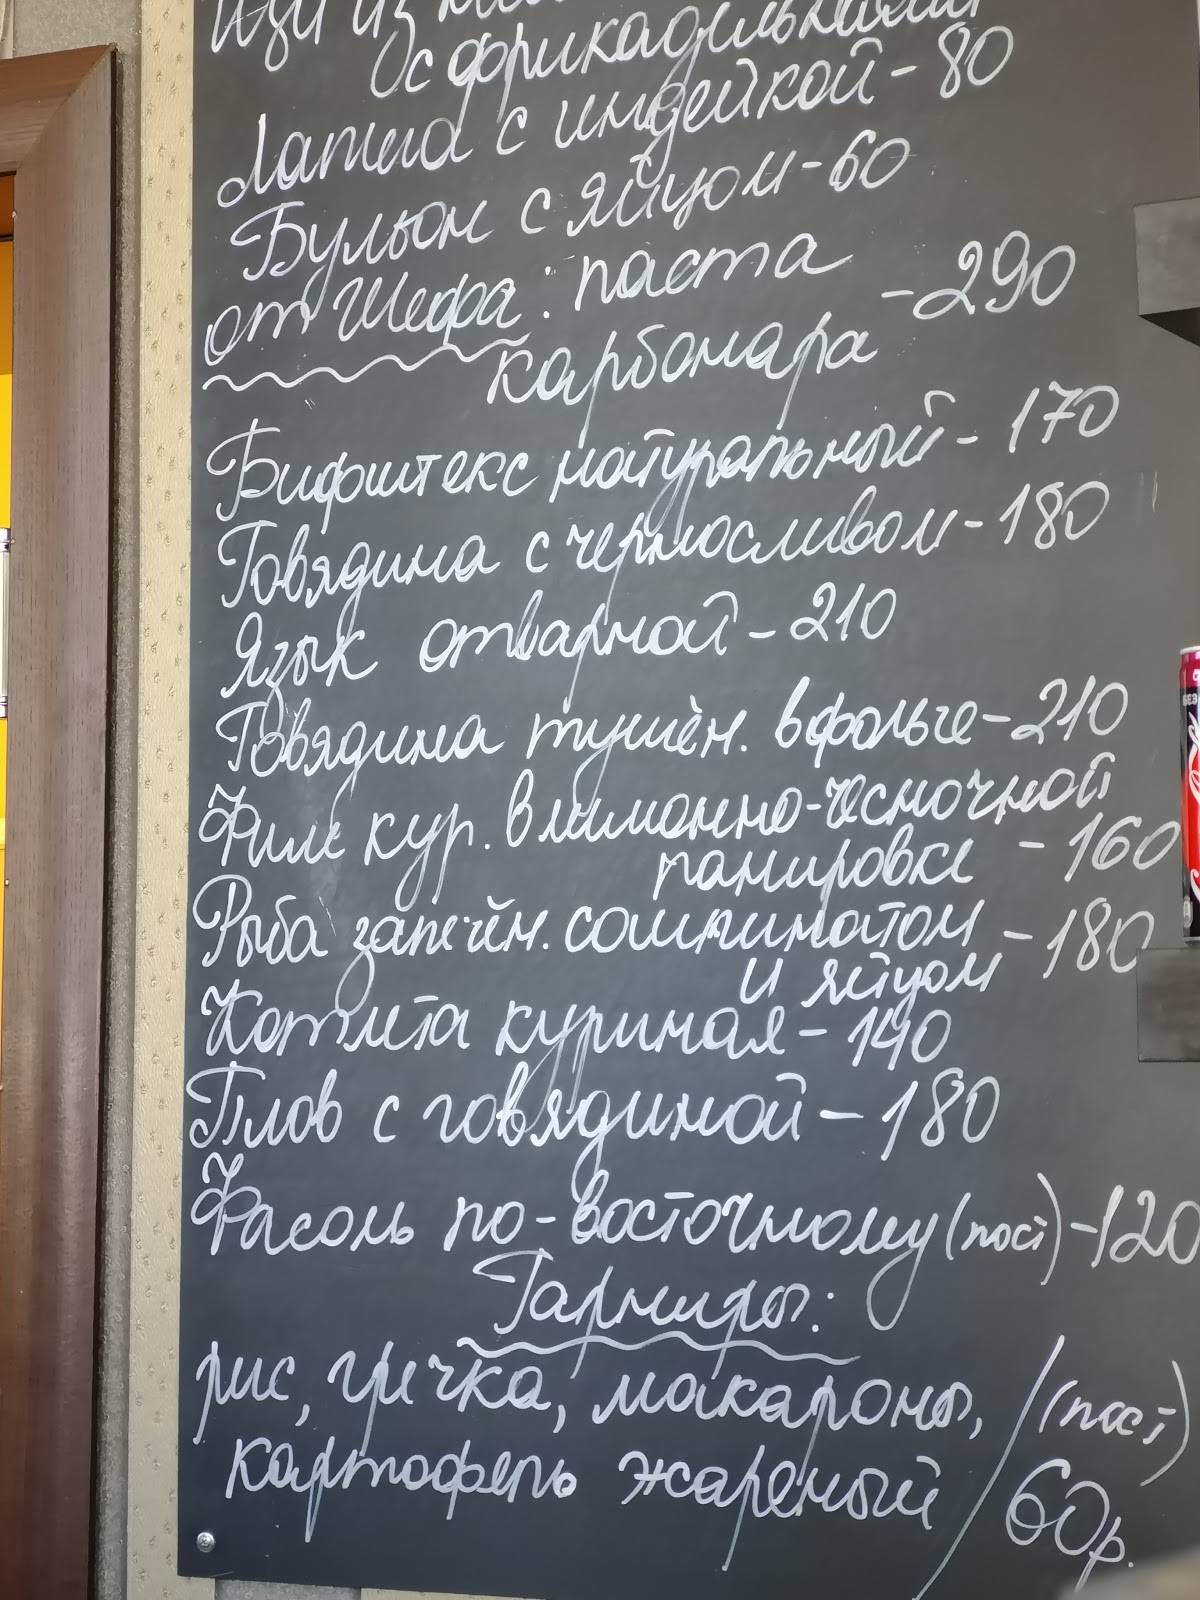 с фрикадельками
Лапша с индейкой - 80
Бульон с яйцом - 60
от Шефа: паста
карбонара - 290
Бифштекс натуральный - 170
Говядина с черносливом - 180
Язык отварной - 210
Говядина тушён. в фольге - 210
Филе кур. в лимонно-чесночной
панировке - 160
Рыба запечён. со шпинатом
и яйцом - 180
Котлета куриная - 140
Плов с говядиной - 180
Фасоль по-восточному (пост) - 120
Гарниры:
рис, гречка, макароны, / (пост)
картофель жареный / 60р.